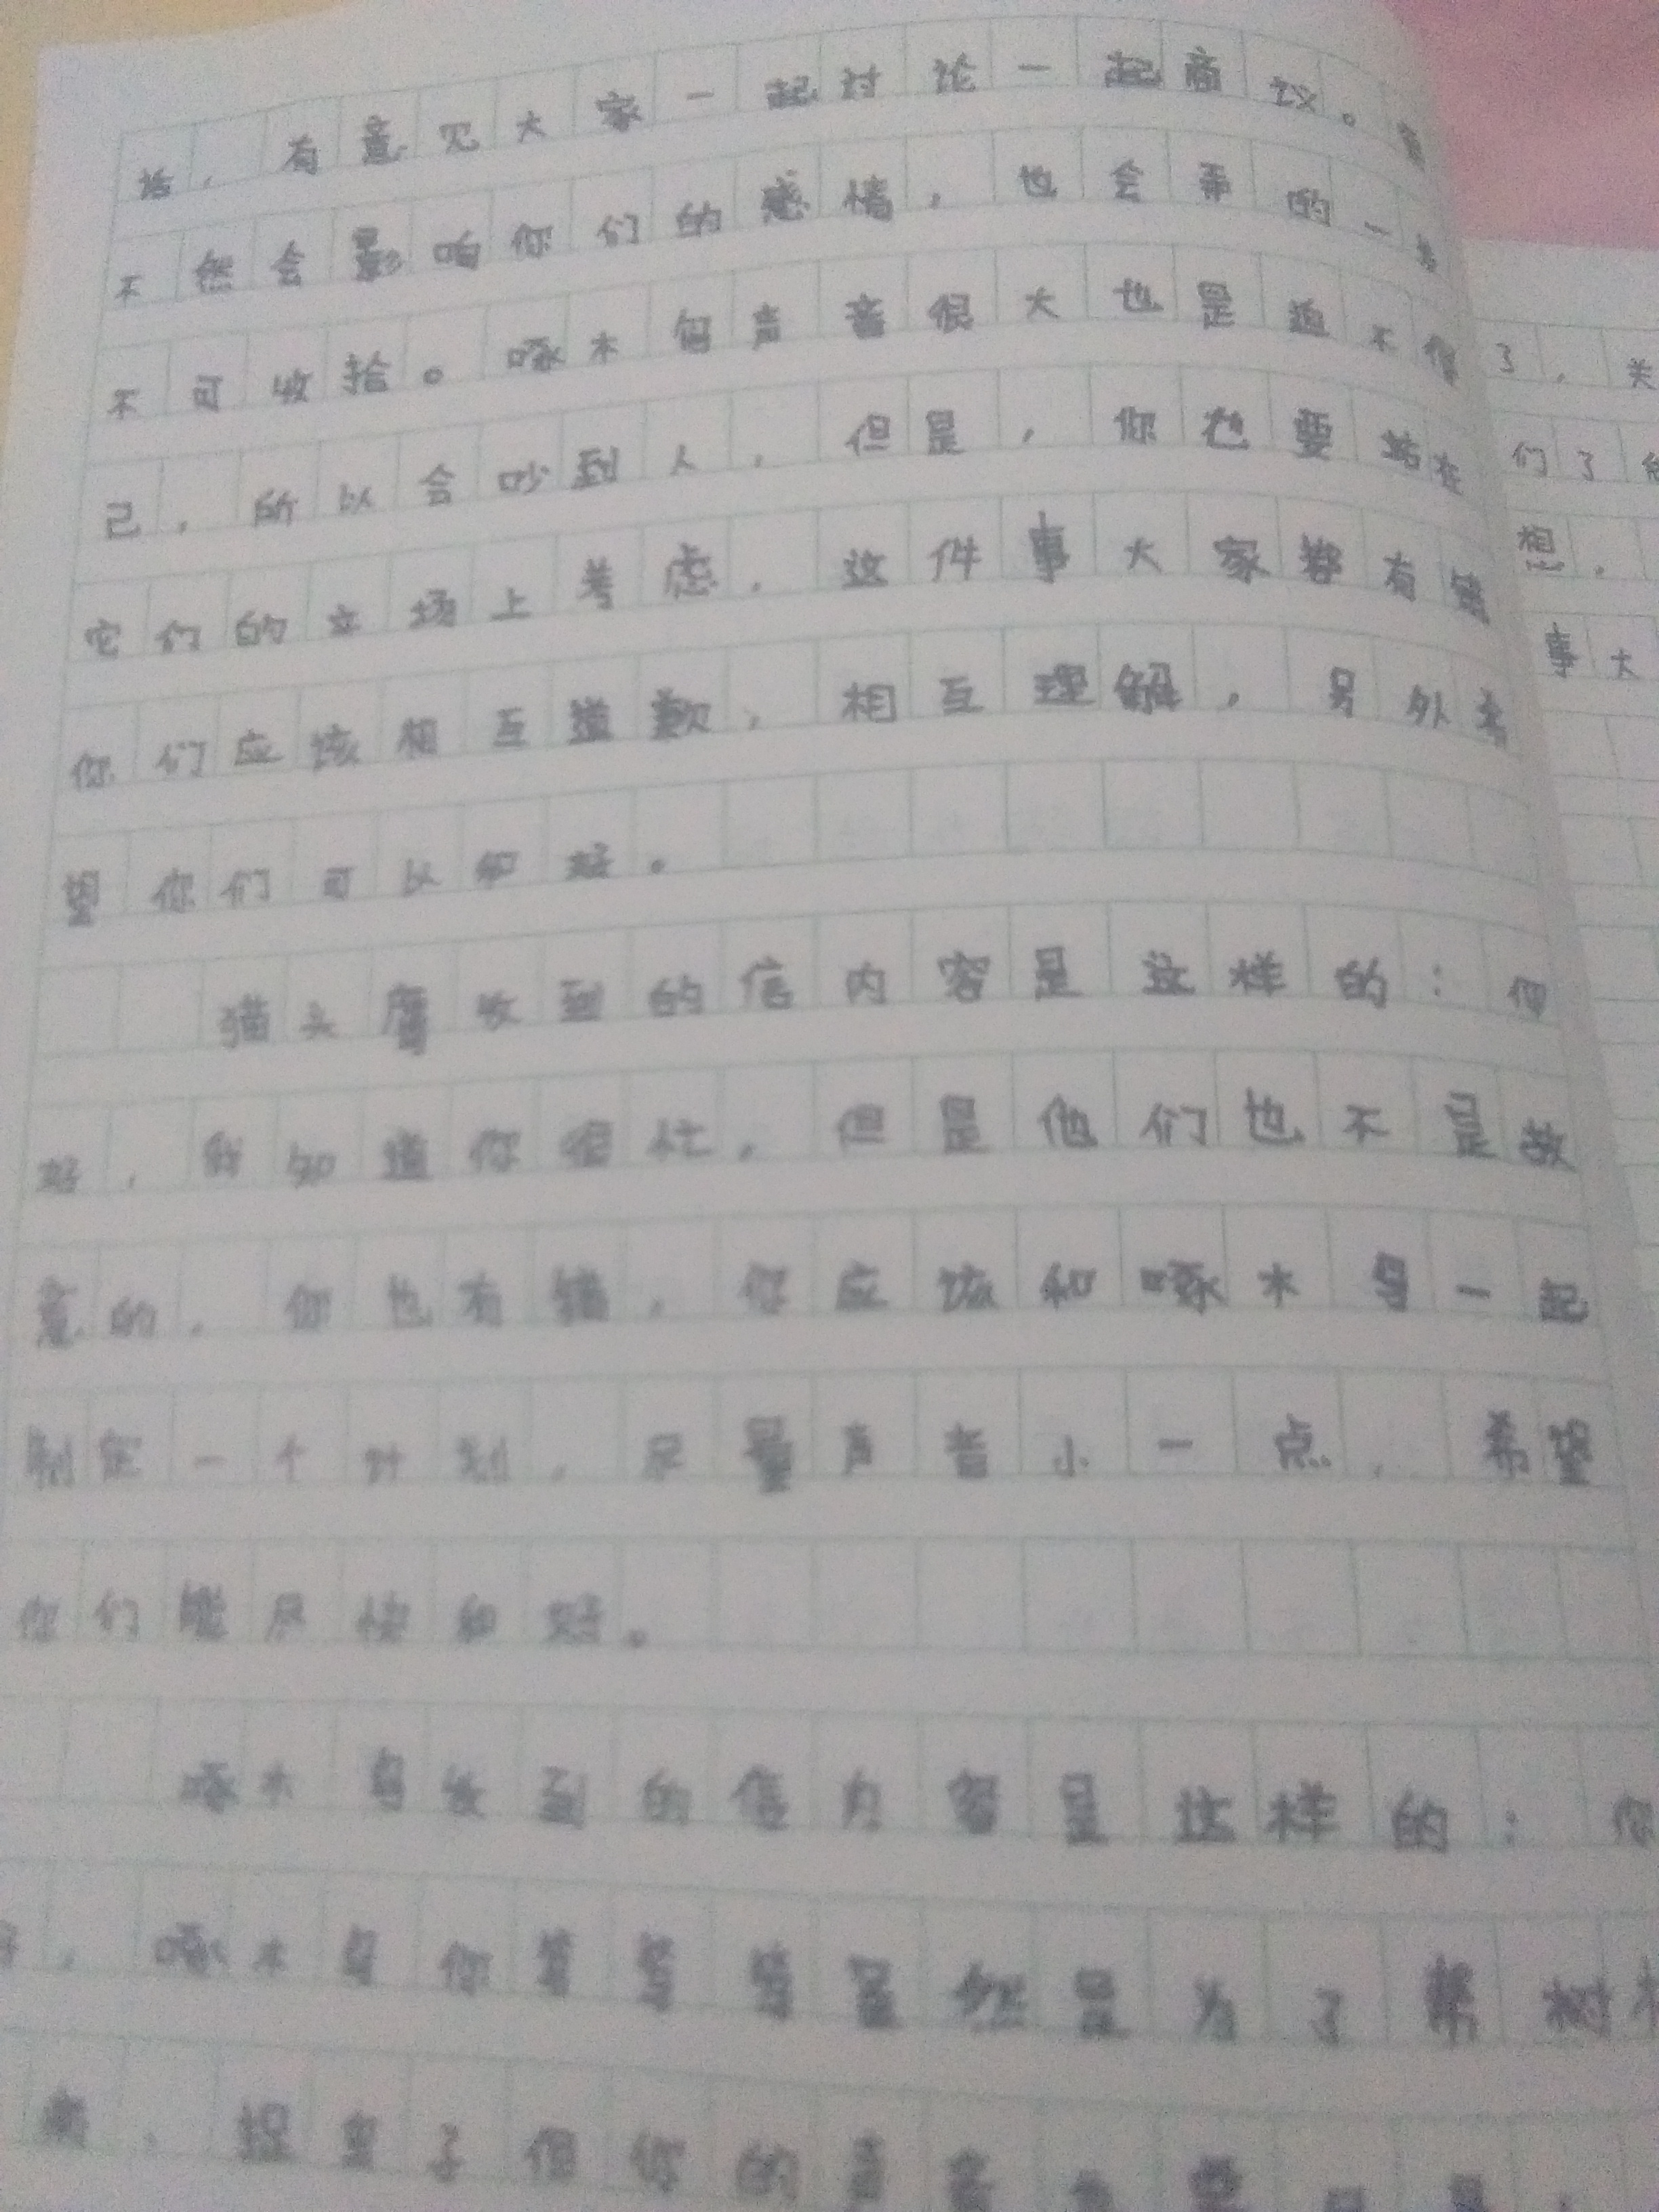 话，有意见大家一起讨论一起商议。
不然会影响你们的感情，也会弄的一
不可收拾。啄木鸟声音很大也是迫不得
己，所以会吵到人，但是，你也要站在
它们的立场上考虑，这件事大家都有错
你们应该相互道歉，相互理解，另外希
望你们可以和好。
猫头鹰收到的信内容是这样的：你
好，我知道你很忙，但是他们也不是故
意的，你也有错，你应该和啄木鸟一起
制定一个计划，尽量声音小一点，希望
你们能尽快和好。
啄木鸟收到的信内容是这样的：你
好，啄木鸟你虽然是为了帮树木
捉虫子但你的声音
了，关
们了
想，
事大